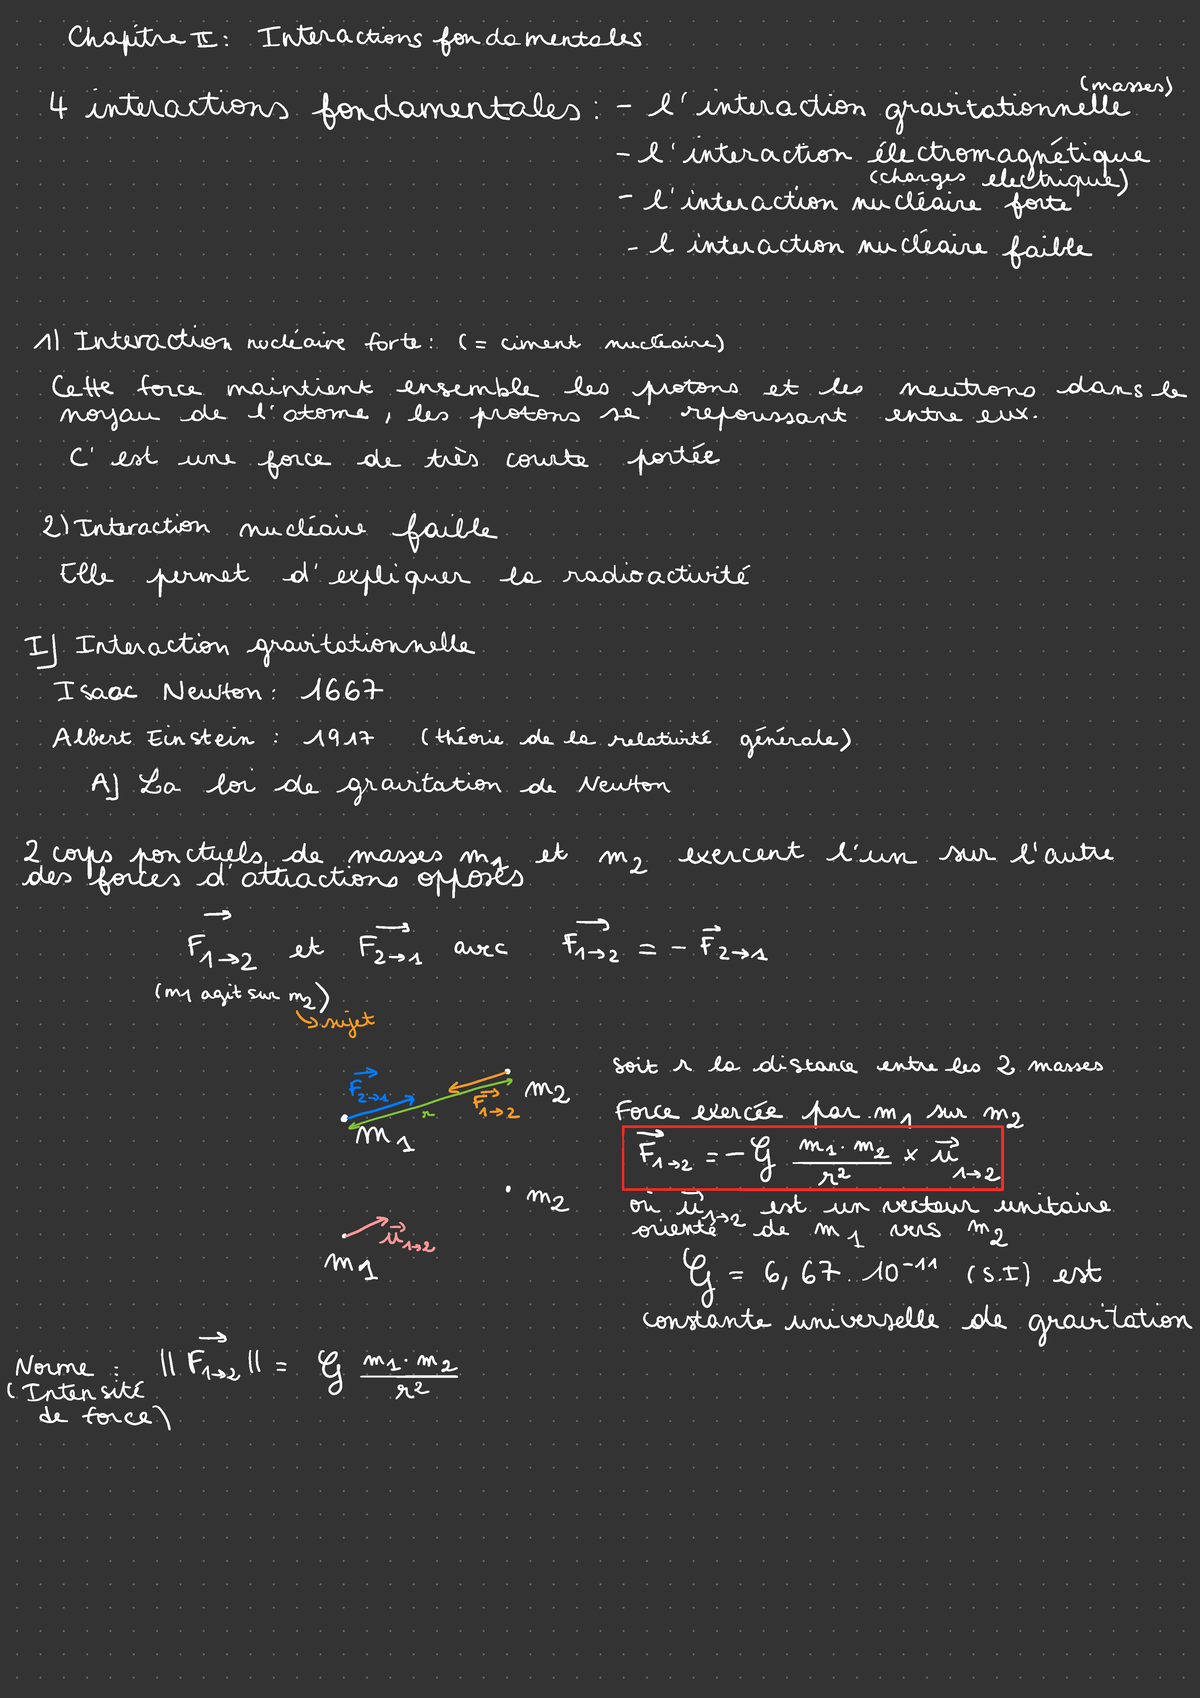 Chapitre II : Interactions fondamentales
(masses)
4 interactions fondamentales : - l'interaction gravitationnelle
- l'interaction électromagnétique
(charges electrique)
- l'interaction nucléaire forte
- l interaction nucléaire faible
1) Interaction nucléaire forte : (= ciment nucléaire)
Cette force maintient ensemble les protons et les neutrons dans le
noyau de l'atome, les protons se repoussant entre eux.
C'est une force de très courte portée
2) Interaction nucléaire faible
Elle permet d'expliquer la radioactivité
I] Interaction gravitationnelle
Isaac Newton : 1667
Albert Einstein : 1917 (théorie de la relativité générale)
A] La loi de gravitation de Newton
2 corps ponctuels de masses m1 et m2 exercent l'un sur l'autre
des forces d'attractions opposés
F⃗1→2 et F⃗2→1 avec F⃗1→2 = - F⃗2→1
(m1 agit sur m2)
↳ sujet
F⃗2→1
r
F⃗1→2
m2
m1
m2
u⃗1→2
m1
soit r la distance entre les 2 masses
Force exercée par m1 sur m2
F⃗1→2 = - G m1·m2 / r² × u⃗1→2
où u⃗1→2 est un vecteur unitaire
orienté de m1 vers m2
G = 6,67·10⁻¹¹ (S.I) est
constante universelle de gravitation
Norme : ||F⃗1→2|| = G m1·m2 / r²
(Intensité
de force)